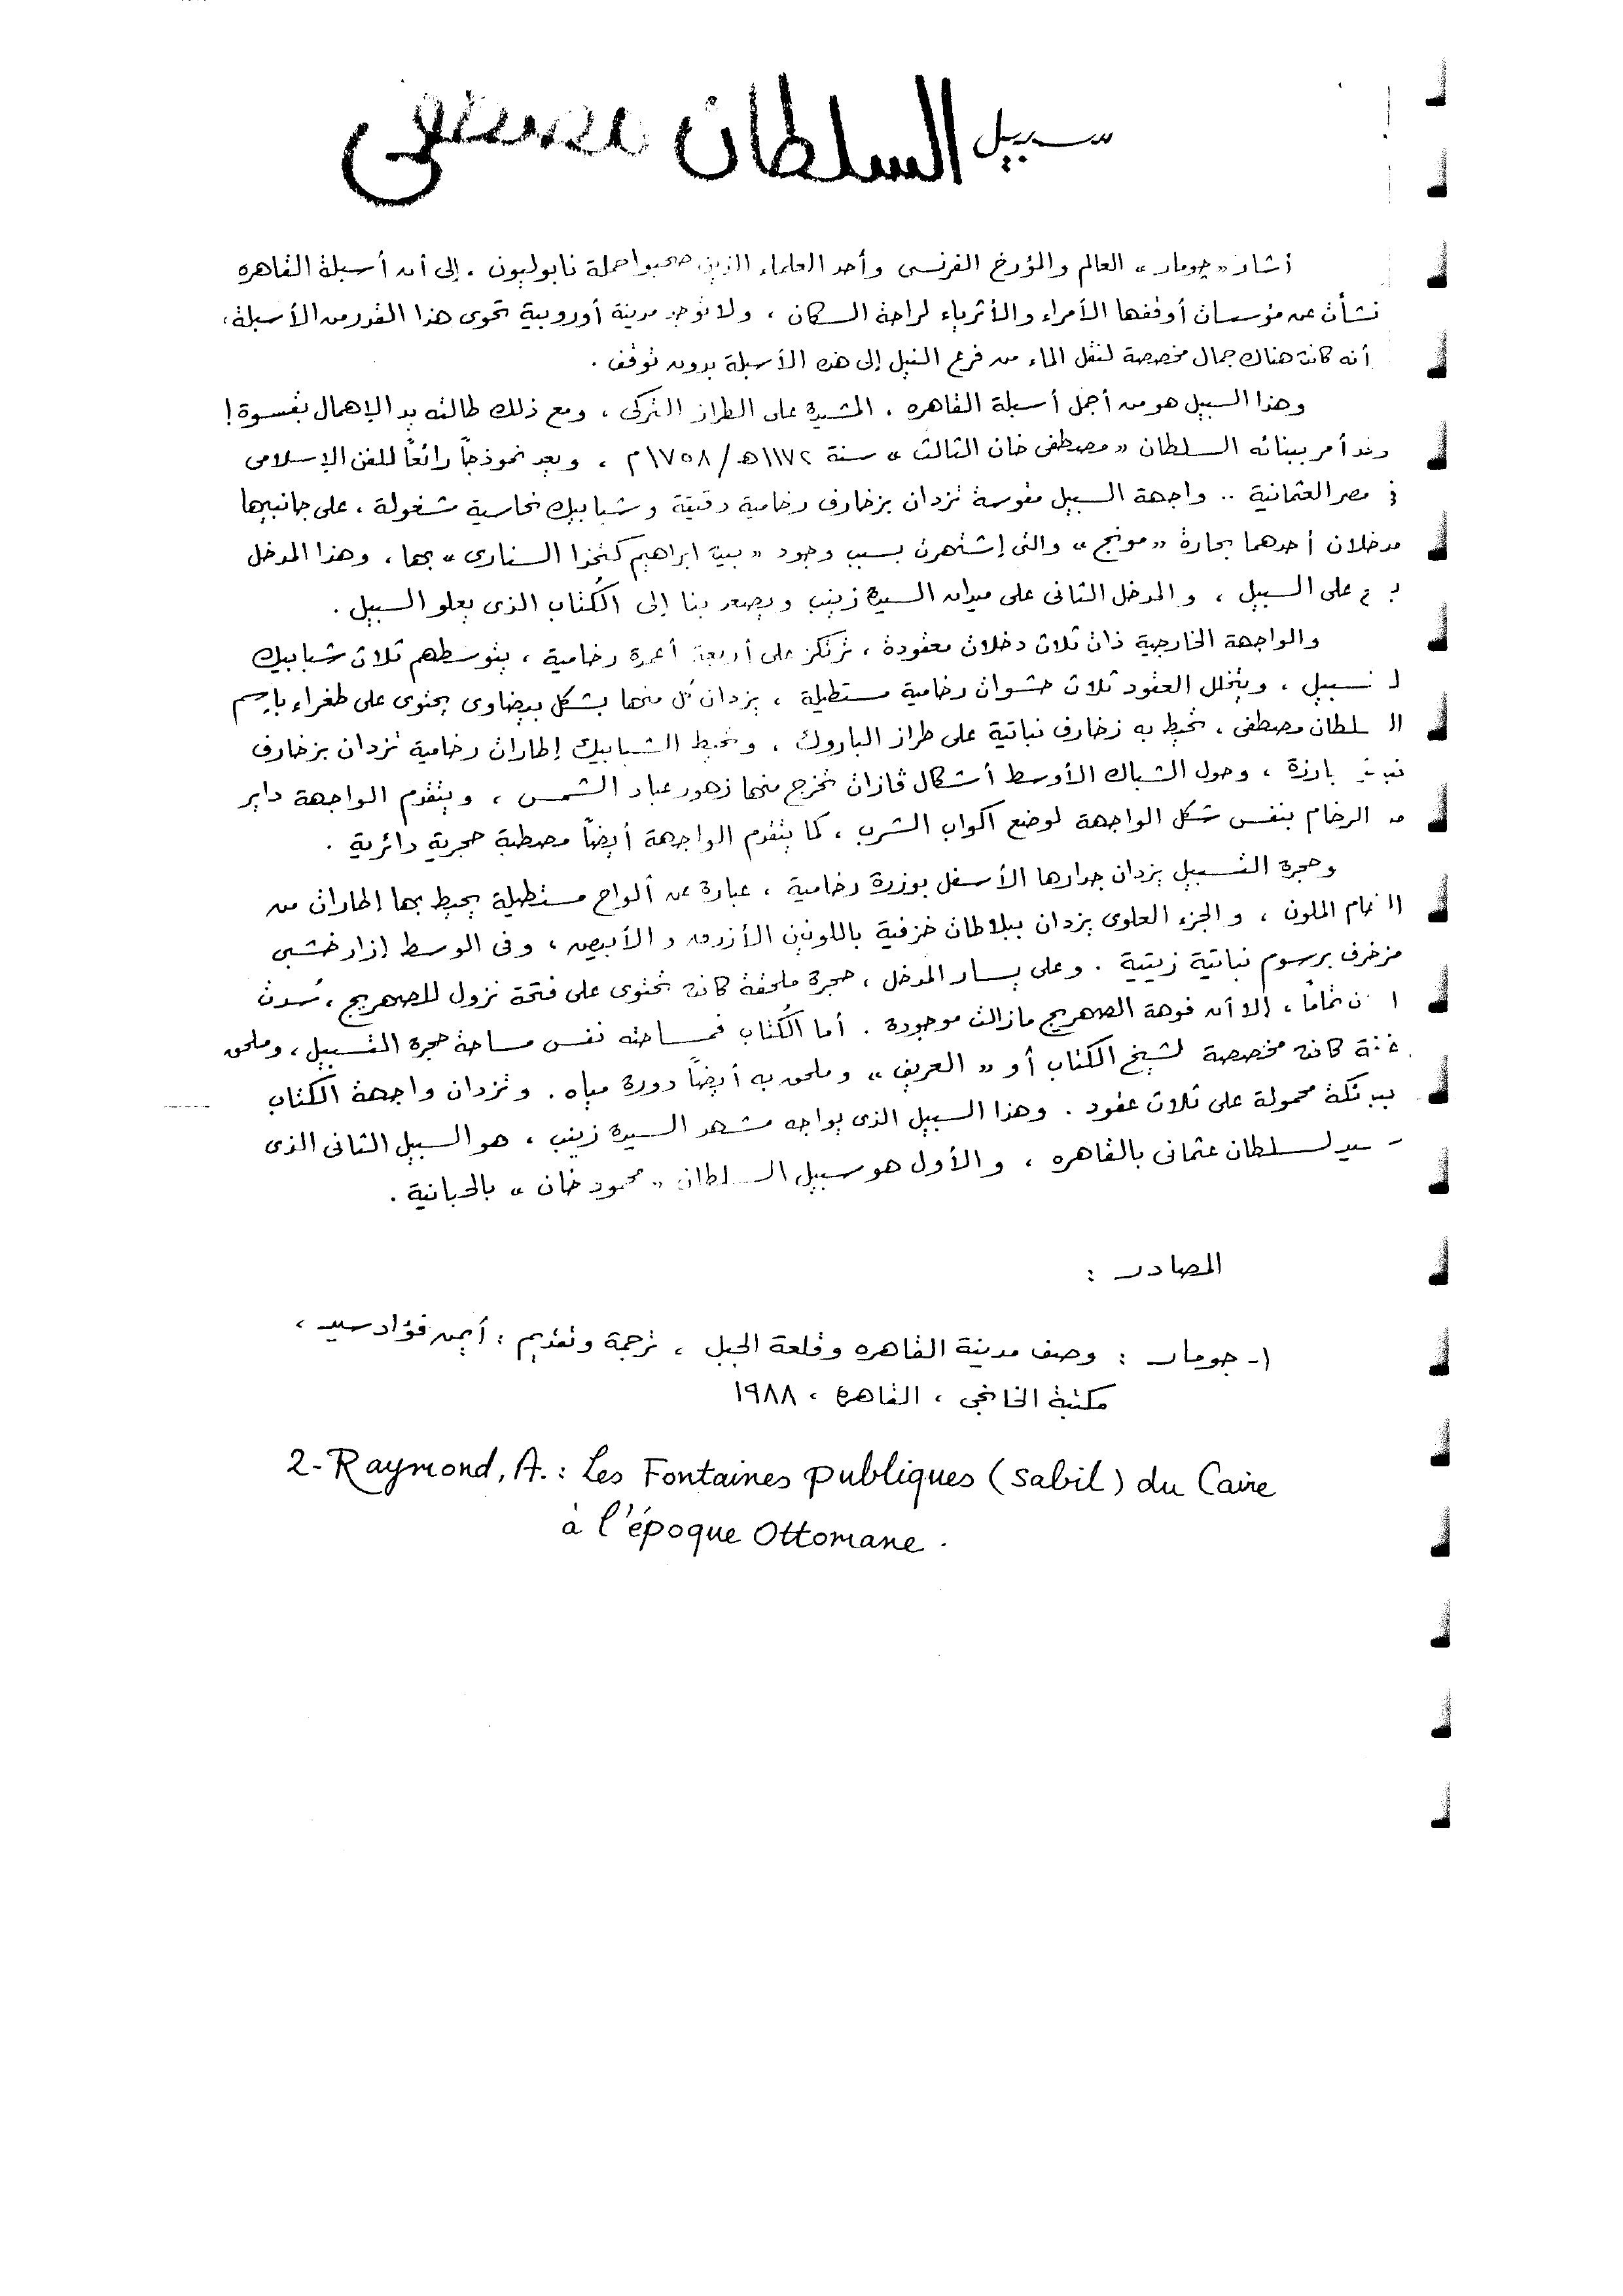 سبيل السلطان مصطفى
أشار «چومار» العالم والمؤرخ الفرنسى وأحد العلماء الذين صحبوا حملة نابوليون، إلى أن أسبلة القاهره
نشأت عن مؤسسات أوقفها الأمراء والأثرياء لراحة السكان، ولا توجد مدينة أوروبية تحوى هذا القدر من الأسبلة،
أنه كانت هناك جمال مخصصة لنقل الماء من فرع النيل إلى هذه الأسبلة بدون توقف.
وهذا السبيل هو من أجمل أسبلة القاهره، المشيدة على الطراز التركى، ومع ذلك طالته يد الإهمال بقسوة!
وقد أمر ببنائه السلطان «مصطفى خان الثالث» سنة ١١٧٢هـ/١٧٥٨م، ويعد نموذجاً رائعاً للفن الإسلامى
فى مصر العثمانية .. واجهة السبيل مقوسة تزدان بزخارف رخامية دقيقة وشبابيك نحاسية مشغولة، على جانبيها
مدخلان أحدهما بحارة «مونج» والتى إشتهرت بسبب وجود «بيت ابراهيم كتخدا السنارى» بها، وهذا المدخل
على السبيل، والمدخل الثانى على ميدان السيدة زينب ويصعد بنا إلى الكُتاب الذى يعلو السبيل.
والواجهة الخارجية ذات ثلاث دخلات معقودة، ترتكز على أربعة أعمدة رخامية، يتوسطهم ثلاث شبابيك
لتسبيل، ويتخلل العقود ثلاث حشوات رخامية مستطيلة، يزدان كل منها بشكل بيضاوى يحتوى على طغراء بإسم
السلطان مصطفى، تحيط به زخارف نباتية على طراز الباروك، وتحيط الشبابيك إطارات رخامية تزدان بزخارف
نباتية بارزة، وحول الشباك الأوسط أشكال ڤازات تخرج منها زهور عباد الشمس، ويتقدم الواجهة داير
من الرخام بنفس شكل الواجهة لوضع اكواب الشرب، كما يتقدم الواجهة أيضاً مصطبة حجرية دائرية.
وحجرة التسبيل يزدان جدارها الأسفل بوزرة رخامية، عبارة عن ألواح مستطيلة يحيط بها إطارات من
الرخام الملون، والجزء العلوى يزدان ببلاطات خزفية باللونين الأزرق والأبيض، وفى الوسط إزار خشبى
مزخرف برسوم نباتية زيتية. وعلى يسار المدخل، حجرة ملحقة كانت تحتوى على فتحة نزول للصهريج، سُدت
الآن تماماً، إلا أن فوهة الصهريج مازالت موجودة. أما الكُتاب فمساحته نفس مساحة حجرة التسبيل، وملحق
كانت مخصصة لشيخ الكتاب أو «العريف» وملحق به أيضاً دورة مياه. وتزدان واجهة الكتاب
ببرتكة محمولة على ثلاث عقود. وهذا السبيل الذى يواجه مشهد السيدة زينب، هو السبيل الثانى الذى
لسلطان عثمانى بالقاهره، والأول هو سبيل السلطان «محمود خان» بالحبانية.
المصادر :
١- جومار : وصف مدينة القاهره وقلعة الجبل، ترجمة وتقديم : أيمن فؤاد سيد،
مكتبة الخانجى، القاهرة، ١٩٨٨
2- Raymond, A.: Les Fontaines publiques (sabil) du Caire
à l'époque Ottomane.